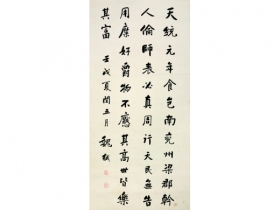 天統元年食邑南兗州梁郡幹
人倫師表必真周行天民無告
用糜好爵物不應其高世皆樂
其富
壬戌夏閏五月
魏戫